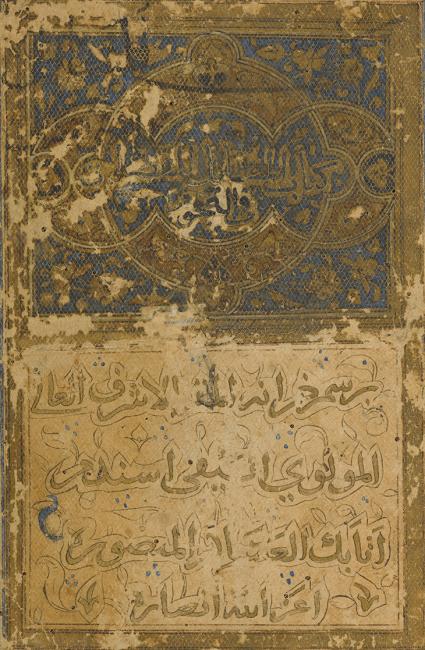 كتاب
برسم خزانه المقر الاشرف العالي
المولوي السيفي اسندمر
اتابك العساكر المنصوره
اعز الله انصاره